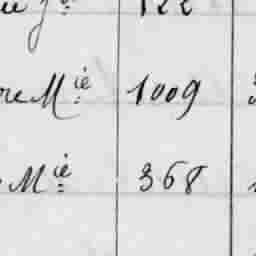 122
Mie 1009
Mie 368